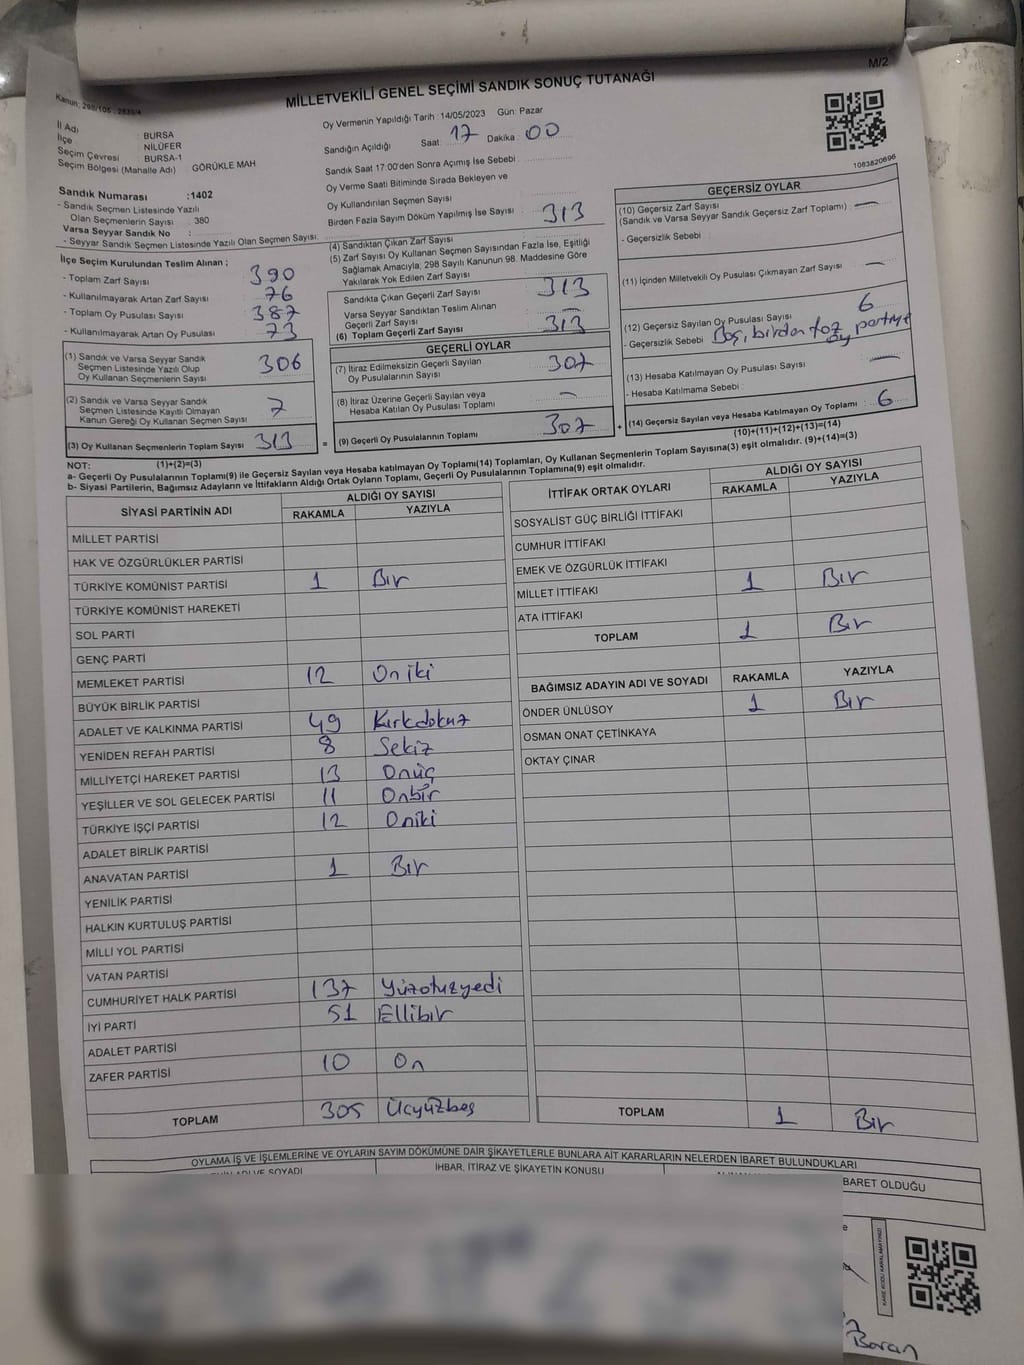 M/2
Kanun: 298/105 , 2839/4
MİLLETVEKİLİ GENEL SEÇİMİ SANDIK SONUÇ TUTANAĞI
İl Adı : BURSA
İlçe : NİLÜFER
Seçim Çevresi : BURSA-1
Seçim Bölgesi (Mahalle Adı) GÖRÜKLE MAH
Sandık Numarası :1402
- Sandık Seçmen Listesinde Yazılı
Olan Seçmenlerin Sayısı : 380
Varsa Seyyar Sandık No :
- Seyyar Sandık Seçmen Listesinde Yazılı Olan Seçmen Sayısı:
Oy Vermenin Yapıldığı Tarih :14/05/2023 Gün: Pazar
Sandığın Açıldığı Saat: 17 Dakika : 00
Sandık Saat 17:00'den Sonra Açımış İse Sebebi :
Oy Verme Saati Bitiminde Sırada Bekleyen ve
Oy Kullandırılan Seçmen Sayısı
Birden Fazla Sayım Döküm Yapılmış İse Sayısı
1083820696
İlçe Seçim Kurulundan Teslim Alınan ;
- Toplam Zarf Sayısı : 390
- Kullanılmayarak Artan Zarf Sayısı : 76
- Toplam Oy Pusulası Sayısı : 387
- Kullanılmayarak Artan Oy Pusulası : 73
(1) Sandık ve Varsa Seyyar Sandık
Seçmen Listesinde Yazılı Olup
Oy Kullanan Seçmenlerin Sayısı 306
(2) Sandık ve Varsa Seyyar Sandık
Seçmen Listesinde Kayıtlı Olmayan
Kanun Gereği Oy Kullanan Seçmen Sayısı 7
(3) Oy Kullanan Seçmenlerin Toplam Sayısı 313
(4) Sandıktan Çıkan Zarf Sayısı 313
(5) Zarf Sayısı Oy Kullanan Seçmen Sayısından Fazla İse, Eşitliği
Sağlamak Amacıyla, 298 Sayılı Kanunun 98. Maddesine Göre
Yakılarak Yok Edilen Zarf Sayısı
Sandıkta Çıkan Geçerli Zarf Sayısı 313
Varsa Seyyar Sandıktan Teslim Alınan
Geçerli Zarf Sayısı —
(6) Toplam Geçerli Zarf Sayısı 313
GEÇERLİ OYLAR
(7) İtiraz Edilmeksizin Geçerli Sayılan
Oy Pusulalarının Sayısı 307
(8) İtiraz Üzerine Geçerli Sayılan veya
Hesaba Katılan Oy Pusulası Toplamı —
= (9) Geçerli Oy Pusulalarının Toplamı 307 +
GEÇERSİZ OYLAR
(10) Geçersiz Zarf Sayısı
(Sandık ve Varsa Seyyar Sandık Geçersiz Zarf Toplamı) : —
- Geçersizlik Sebebi :
(11) İçinden Milletvekili Oy Pusulası Çıkmayan Zarf Sayısı —
(12) Geçersiz Sayılan Oy Pusulası Sayısı 6
- Geçersizlik Sebebi Boş, birden faz oy partiye
(13) Hesaba Katılmayan Oy Pusulası Sayısı —
- Hesaba Katılmama Sebebi :
(14) Geçersiz Sayılan veya Hesaba Katılmayan Oy Toplamı : 6
(10)+(11)+(12)+(13)=(14)
NOT: (1)+(2)=(3)
a- Geçerli Oy Pusulalarının Toplamı(9) ile Geçersiz Sayılan veya Hesaba katılmayan Oy Toplamı(14) Toplamları, Oy Kullanan Seçmenlerin Toplam Sayısına(3) eşit olmalıdır. (9)+(14)=(3)
b- Siyasi Partilerin, Bağımsız Adayların ve İttifakların Aldığı Ortak Oyların Toplamı, Geçerli Oy Pusulalarının Toplamına(9) eşit olmalıdır.
SİYASİ PARTİNİN ADI ALDIĞI OY SAYISI
RAKAMLA YAZIYLA
MİLLET PARTİSİ
HAK VE ÖZGÜRLÜKLER PARTİSİ
TÜRKİYE KOMÜNİST PARTİSİ 1 Bir
TÜRKİYE KOMÜNİST HAREKETİ
SOL PARTİ
GENÇ PARTİ
MEMLEKET PARTİSİ 12 Oniki
BÜYÜK BİRLİK PARTİSİ
ADALET VE KALKINMA PARTİSİ 49 Kırkdokuz
YENİDEN REFAH PARTİSİ 8 Sekiz
MİLLİYETÇİ HAREKET PARTİSİ 13 Onüç
YEŞİLLER VE SOL GELECEK PARTİSİ 11 Onbir
TÜRKİYE İŞÇİ PARTİSİ 12 Oniki
ADALET BİRLİK PARTİSİ
ANAVATAN PARTİSİ 1 Bir
YENİLİK PARTİSİ
HALKIN KURTULUŞ PARTİSİ
MİLLİ YOL PARTİSİ
VATAN PARTİSİ
CUMHURİYET HALK PARTİSİ 137 Yüzotuzyedi
İYİ PARTİ 51 Ellibir
ADALET PARTİSİ
ZAFER PARTİSİ 10 On
TOPLAM 305 Üçyüzbeş
İTTİFAK ORTAK OYLARI ALDIĞI OY SAYISI
RAKAMLA YAZIYLA
SOSYALİST GÜÇ BİRLİĞİ İTTİFAKI
CUMHUR İTTİFAKI
EMEK VE ÖZGÜRLÜK İTTİFAKI
MİLLET İTTİFAKI 1 Bir
ATA İTTİFAKI
TOPLAM 1 Bir
BAĞIMSIZ ADAYIN ADI VE SOYADI RAKAMLA YAZIYLA
ÖNDER ÜNLÜSOY 1 Bir
OSMAN ONAT ÇETİNKAYA
OKTAY ÇINAR
TOPLAM 1 Bir
OYLAMA İŞ VE İŞLEMLERİNE VE OYLARIN SAYIM DÖKÜMÜNE DAİR ŞİKAYETLERLE BUNLARA AİT KARARLARIN NELERDEN İBARET BULUNDUKLARI
ADI VE SOYADI İHBAR, İTİRAZ VE ŞİKAYETİN KONUSU
BARET OLDUĞU
KARE KODU KARALAMAYINIZ!
Baran